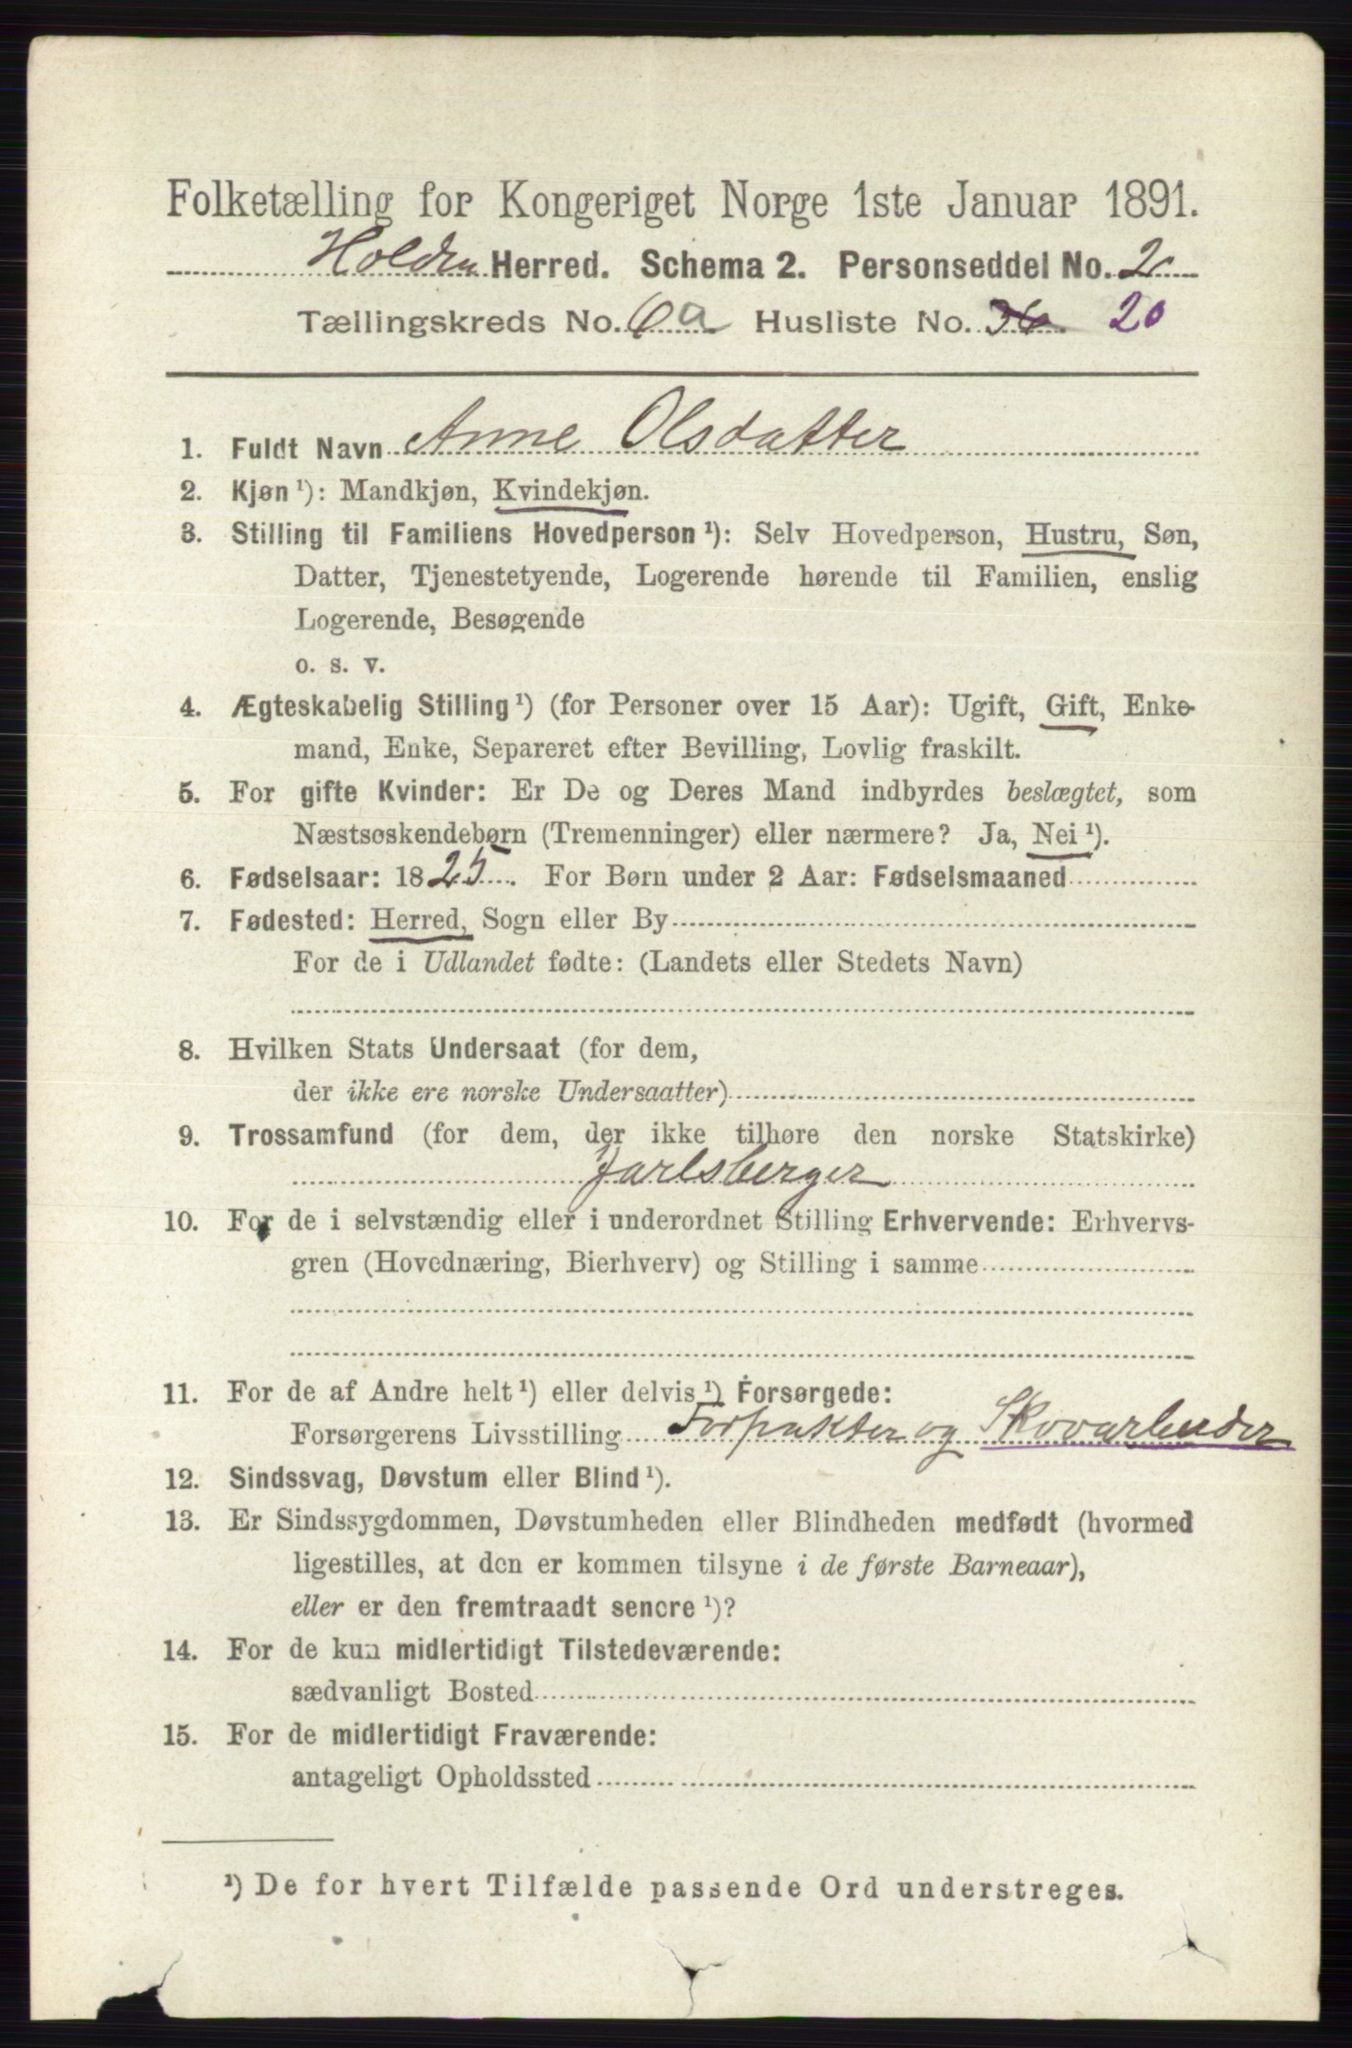 Folketælling for Kongeriget Norge 1ste Januar 1891.
Holden Herred. Schema 2. Personseddel No. 2
Tællingskreds No. 6a Husliste No. 36. 20
1. Fuldt Navn Anne Olsdatter
2. Kjøn ¹): Mandkjøn, Kvindekjøn.
3. Stilling til Familiens Hovedperson ¹): Selv Hovedperson, Hustru, Søn,
Datter, Tjenestetyende, Logerende hørende til Familien, enslig
Logerende, Besøgende
o. s. v.
4. Ægteskabelig Stilling ¹) (for Personer over 15 Aar): Ugift, Gift, Enke-
mand, Enke, Separeret efter Bevilling, Lovlig fraskilt.
5. For gifte Kvinder: Er De og Deres Mand indbyrdes beslægtet, som
Næstsøskendebørn (Tremenninger) eller nærmere? Ja, Nei ¹).
6. Fødselsaar: 1825. For Børn under 2 Aar: Fødselsmaaned
7. Fødested: Herred, Sogn eller By
For de i Udlandet fødte: (Landets eller Stedets Navn)
8. Hvilken Stats Undersaat (for dem,
der ikke ere norske Undersaatter)
9. Trossamfund (for dem, der ikke tilhøre den norske Statskirke)
Jarlsberger
10. For de i selvstændig eller i underordnet Stilling Erhvervende: Erhvervs-
gren (Hovednæring, Bierhverv) og Stilling i samme
11. For de af Andre helt ¹) eller delvis ¹) Forsørgede:
Forsørgerens Livsstilling Forpakter og Skovarbeider
12. Sindssvag, Døvstum eller Blind ¹).
13. Er Sindssygdommen, Døvstumheden eller Blindheden medfødt (hvormed
ligestilles, at den er kommen tilsyne i de første Barneaar),
eller er den fremtraadt senere ¹)?
14. For de kun midlertidigt Tilstedeværende:
sædvanligt Bosted
15. For de midlertidigt Fraværende:
antageligt Opholdssted
¹) De for hvert Tilfælde passende Ord understreges.